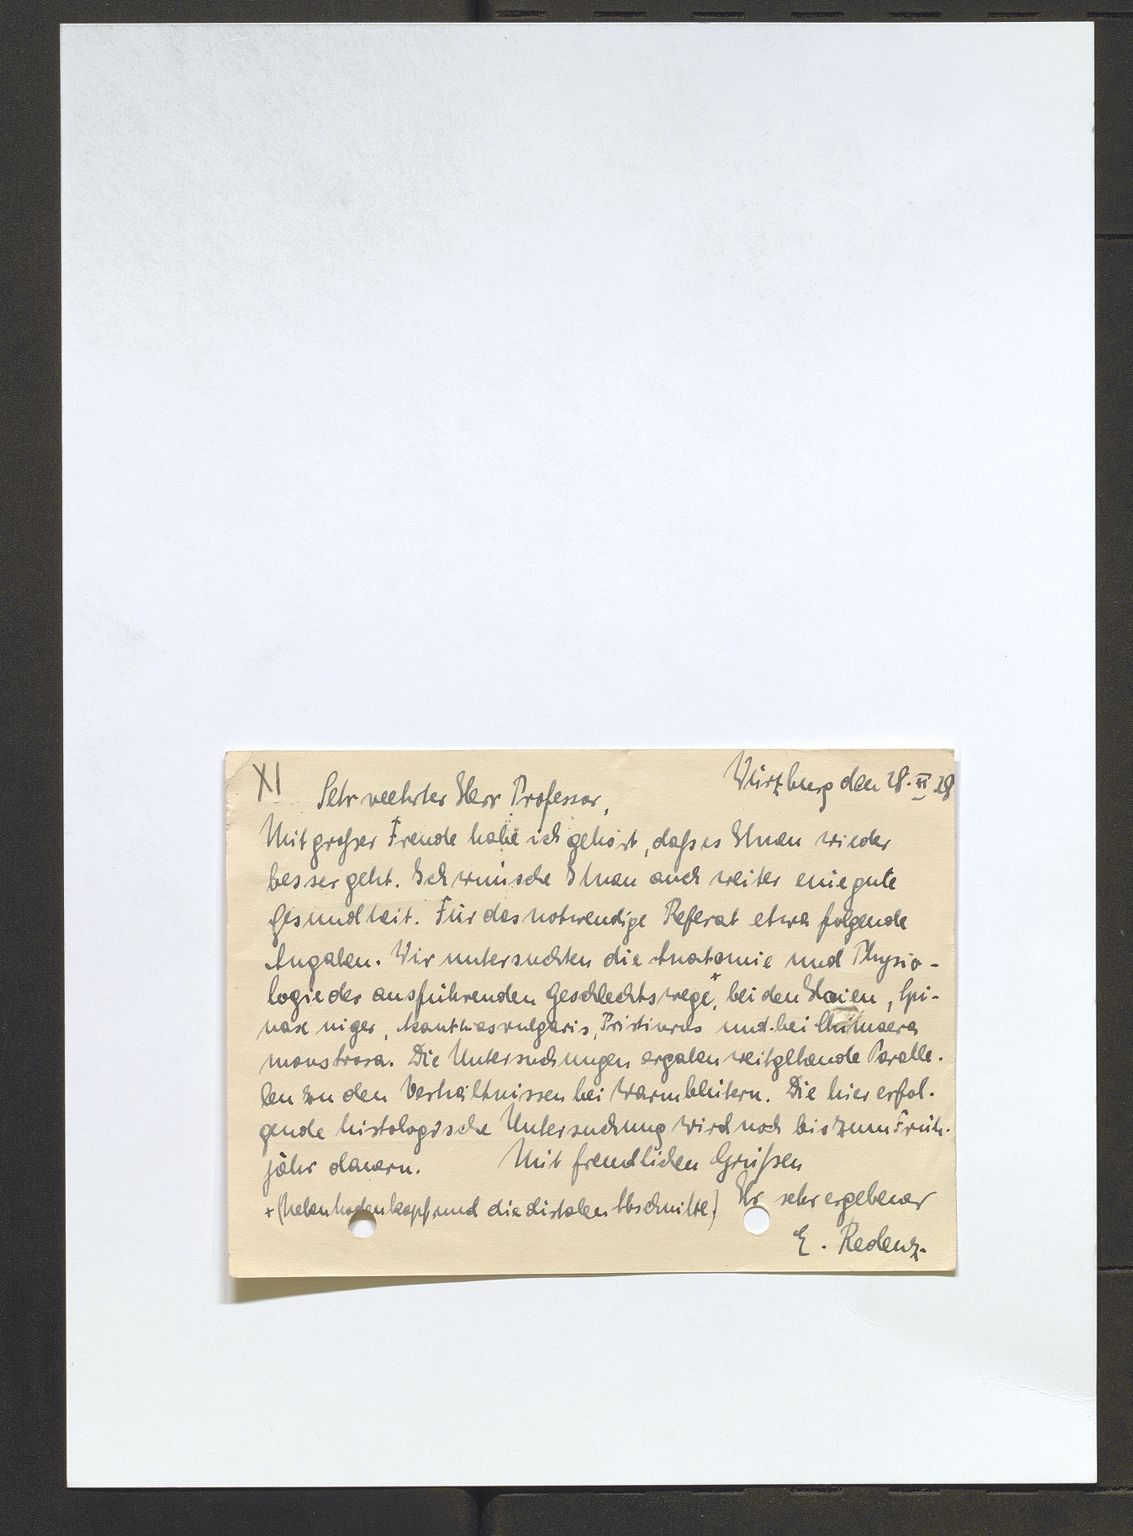 XI
Würzburg den 28. XI 28
Sehr verehrter Herr Professor,
Mit großer Freude habe ich gehört, daß es Ihnen wieder
besser geht. Ich wünsche Ihnen auch weiter eine gute
Gesundheit. Für das notwendige Referat etwa folgende
Angaben. Wir untersuchten die Anatomie und Physio-
logie der ausführenden Geschlechtswege*, bei den Haien, Spi-
nax niger, Acanthias vulgaris, Pristiurus und bei Chimaera
monstrosa. Die Untersuchungen ergaben weitgehende Paralle-
len zu den Verhältnissen bei Warmblütern. Die hier erfol-
gende histologische Untersuchung wird noch bis zum Früh-
jahr dauern. Mit freundlichen Grüßen
Ihr sehr ergebener
E. Redenz.
* (Nebenhodenkopf und die distalen Abschnitte)